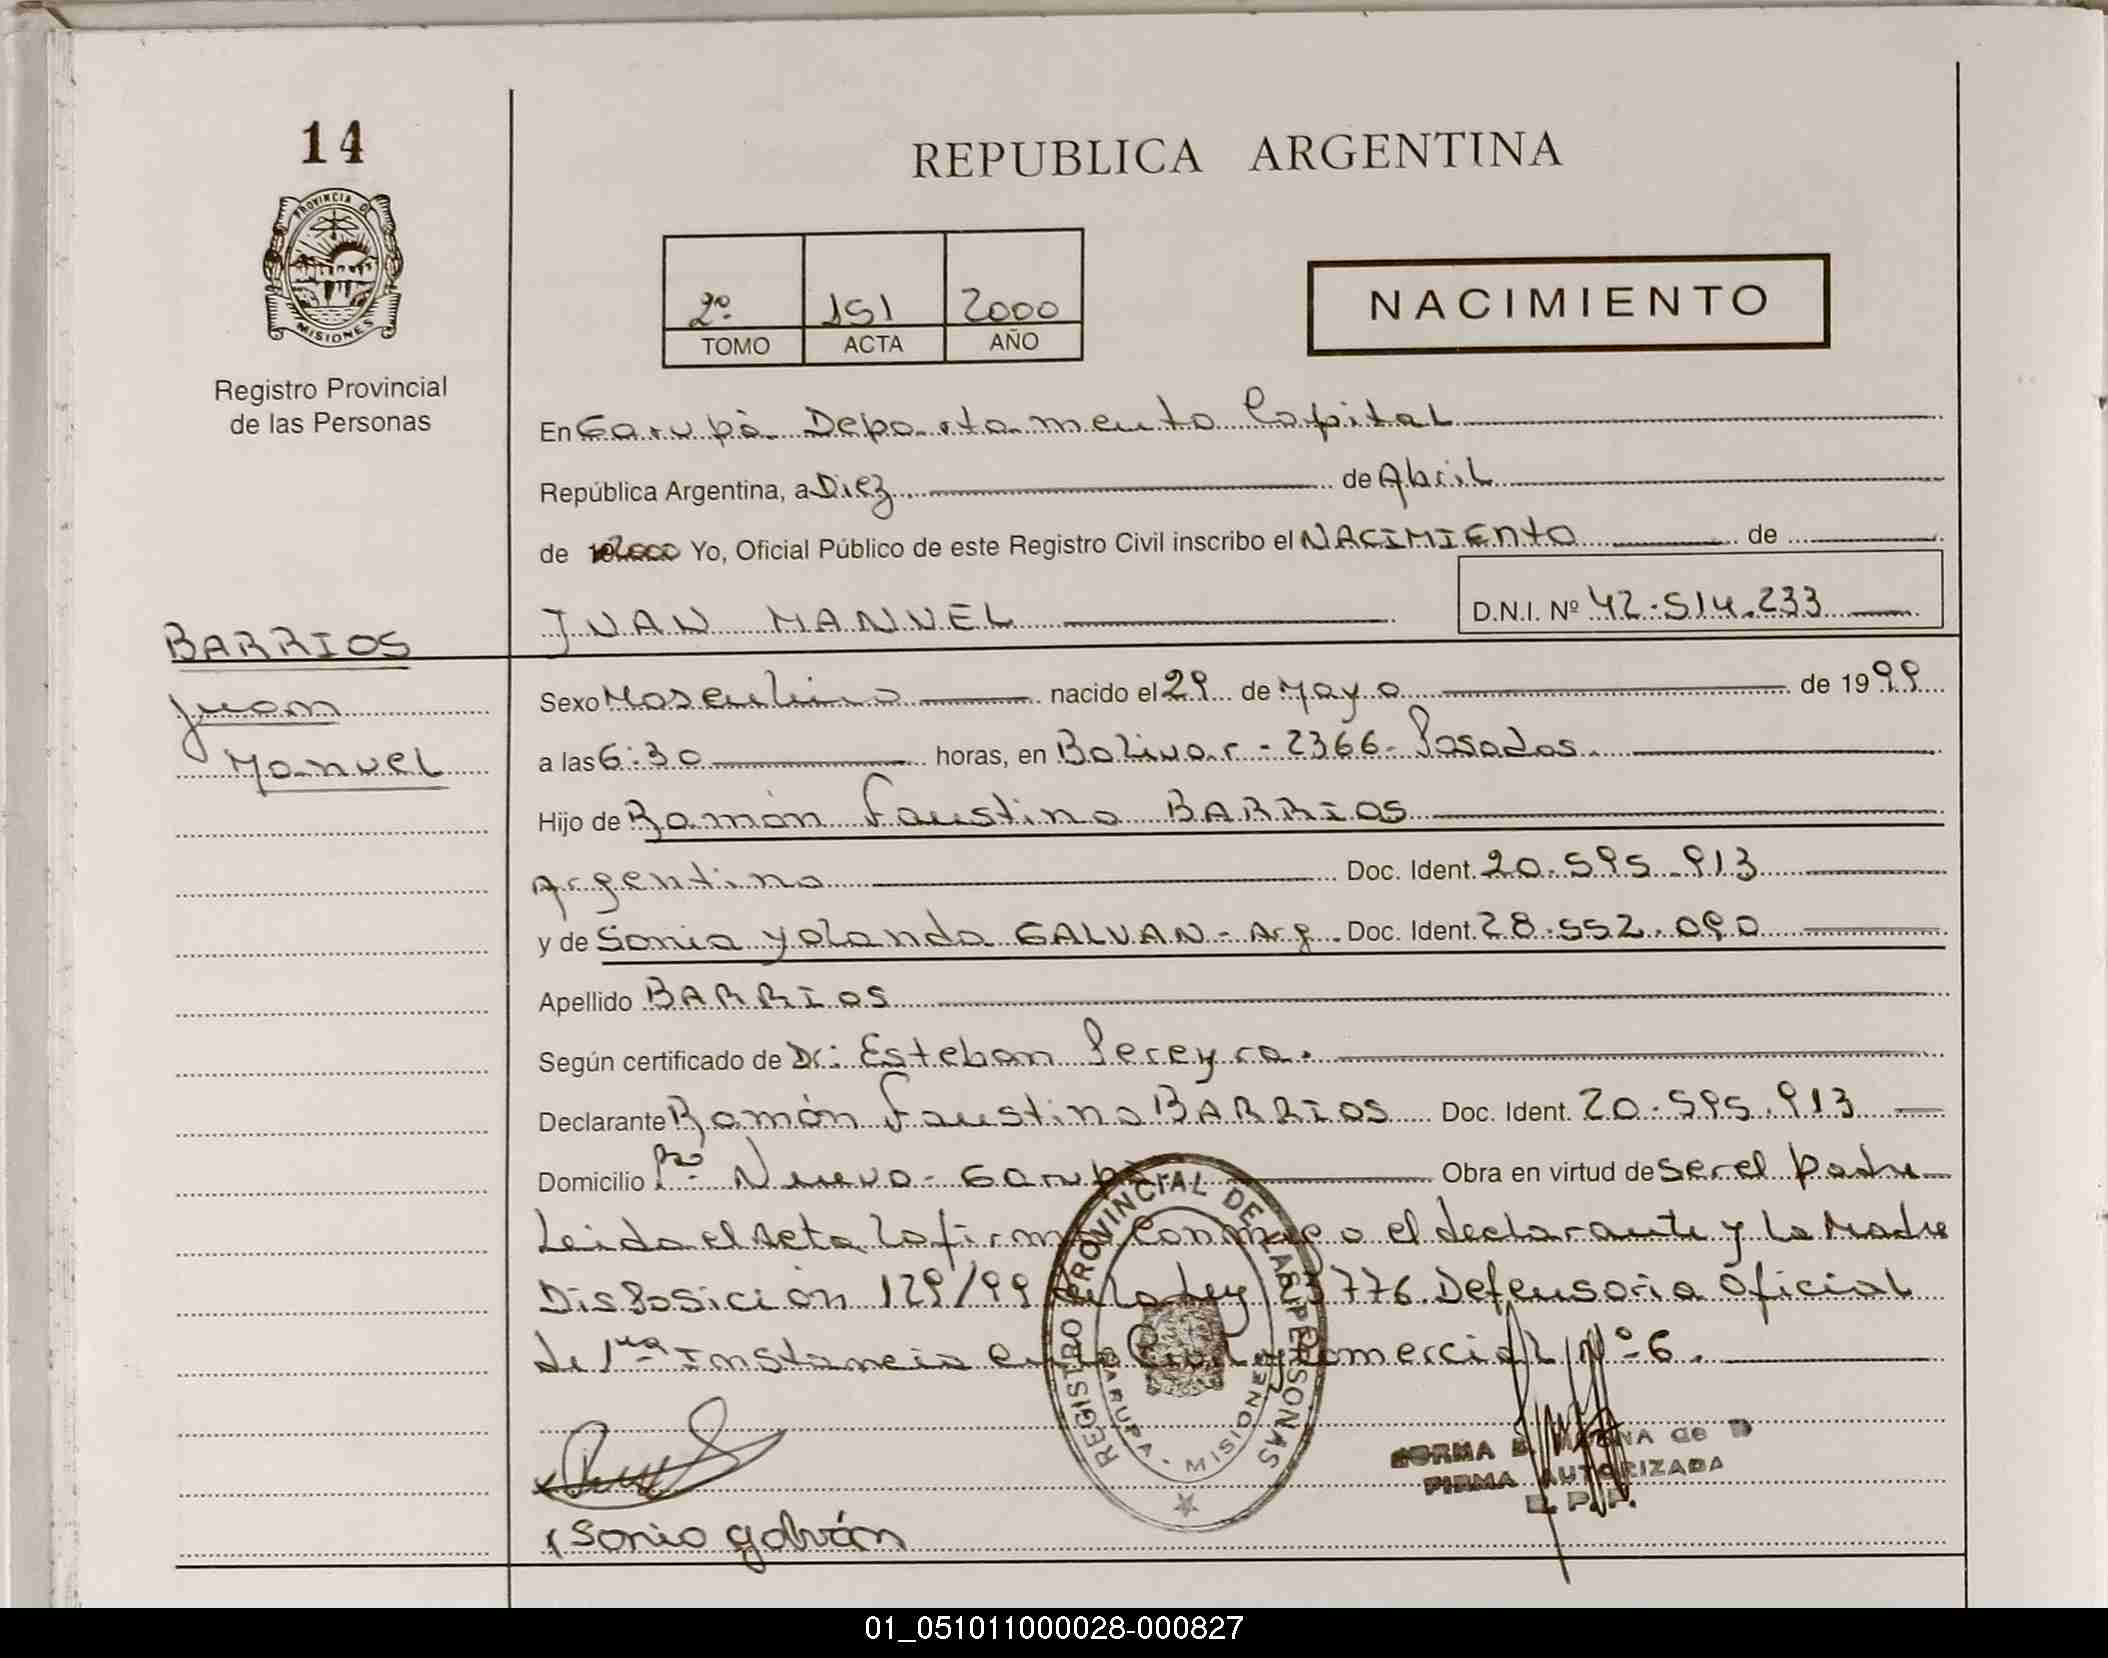 14
PROVINCIA DE
MISIONES
Registro Provincial
de las Personas
REPUBLICA ARGENTINA
2º 151 2000
TOMO ACTA AÑO
NACIMIENTO
En Garupà Departamento Capital
República Argentina, a Diez de Abril
de 2000 Yo, Oficial Público de este Registro Civil inscribo el NACIMIENTO de
JUAN MANUEL D.N.I. Nº 42.514.233
BARRIOS
Juan
Manuel
Sexo Masculino nacido el 29 de Mayo de 1999
a las 6:30 horas, en Bolivar - 2366 - Posadas.
Hijo de Ramón Faustino BARRIOS
Argentino Doc. Ident. 20.595.913
y de Sonia Yolanda GALVAN - Arg. Doc. Ident. 28.552.090
Apellido BARRIOS
Según certificado de Dr: Esteban Pereyra.
Declarante Ramón Faustino BARRIOS Doc. Ident. 20.595.913
Domicilio Bº Nuevo - Garupà Obra en virtud de ser el padre
Leida el Acta la firma Conmigo el declarante y la Madre
Disposición 129/99 de la Ley 23776. Defensoria Oficial
de 1ra Instancia en lo Civil y Comercial Nº 6.
REGISTRO PROVINCIAL DE LAS PERSONAS
GARUPA - MISIONES
NORMA B. de D
FIRMA AUTORIZADA
R. P. P.
Sonia galván
01_051011000028-000827